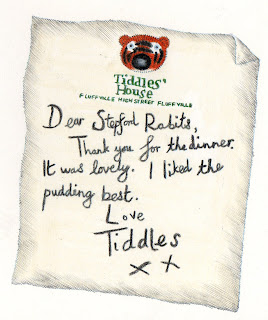 Tiddles'
House
FLUFFVILLE HIGH STREET FLUFFVILLE
Dear Stepford Rabits,
Thank you for the dinner.
It was lovely. I liked the
pudding best.
Love
Tiddles
x x